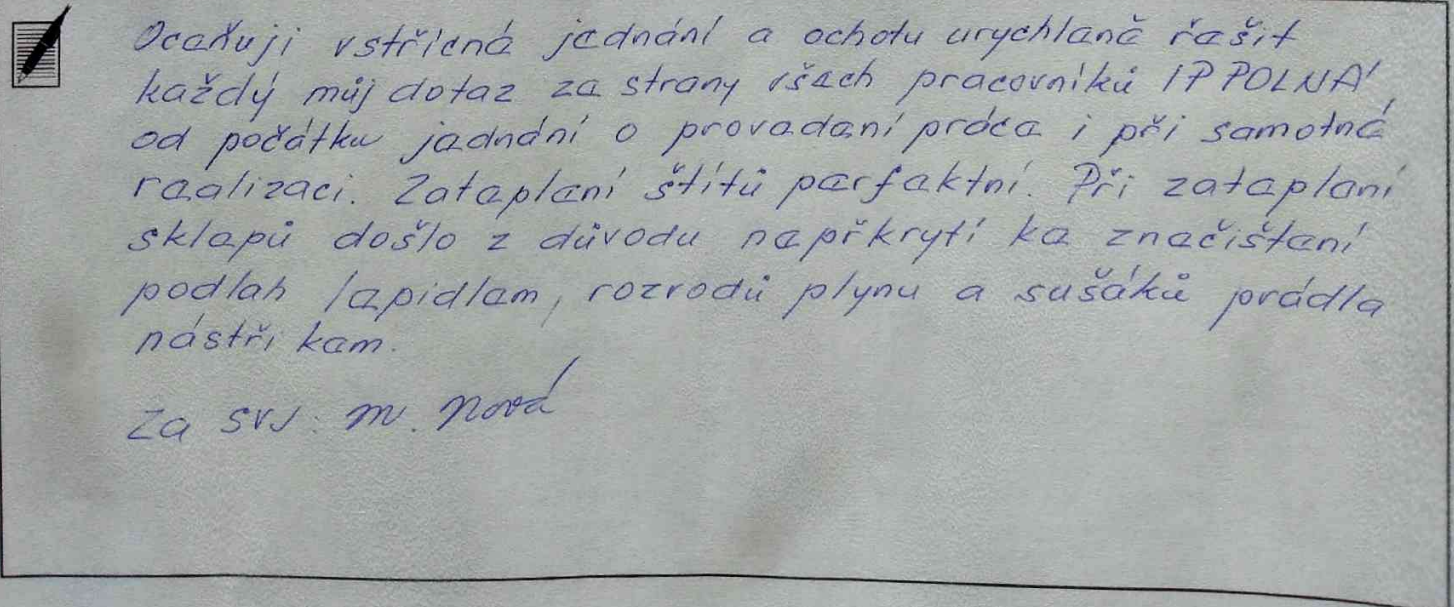 Oceňuji vstřícné jednání a ochotu urychleně řešit
každý můj dotaz ze strany všech pracovníků IP POLNÁ,
od počátku jednání o provedení práce i při samotné
realizaci. Zateplení štítů perfektní. Při zateplení
sklepů došlo z důvodu nepřkrytí ke značištění
podlah lepidlem, rozvodů plynu a sušáků prádla
nástřikem.
Za SVJ: M. Nová